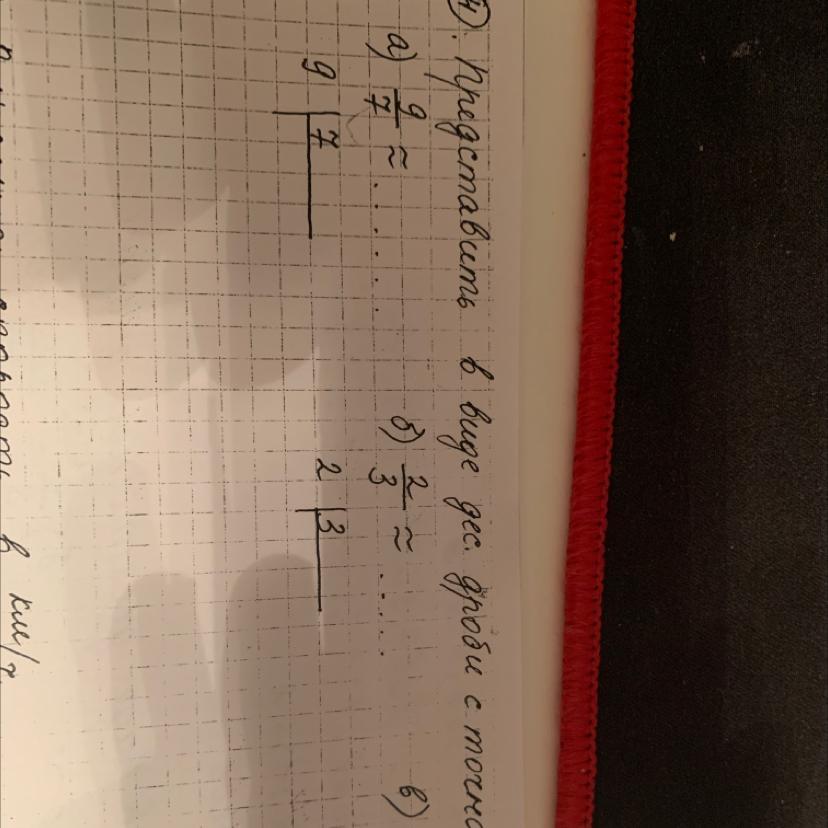 4). Представить в виде дес. дроби с точно
а) 9/7 ≈ ...... б) 2/3 ≈ ..... в)
9 | 7 2 | 3
в км/ч